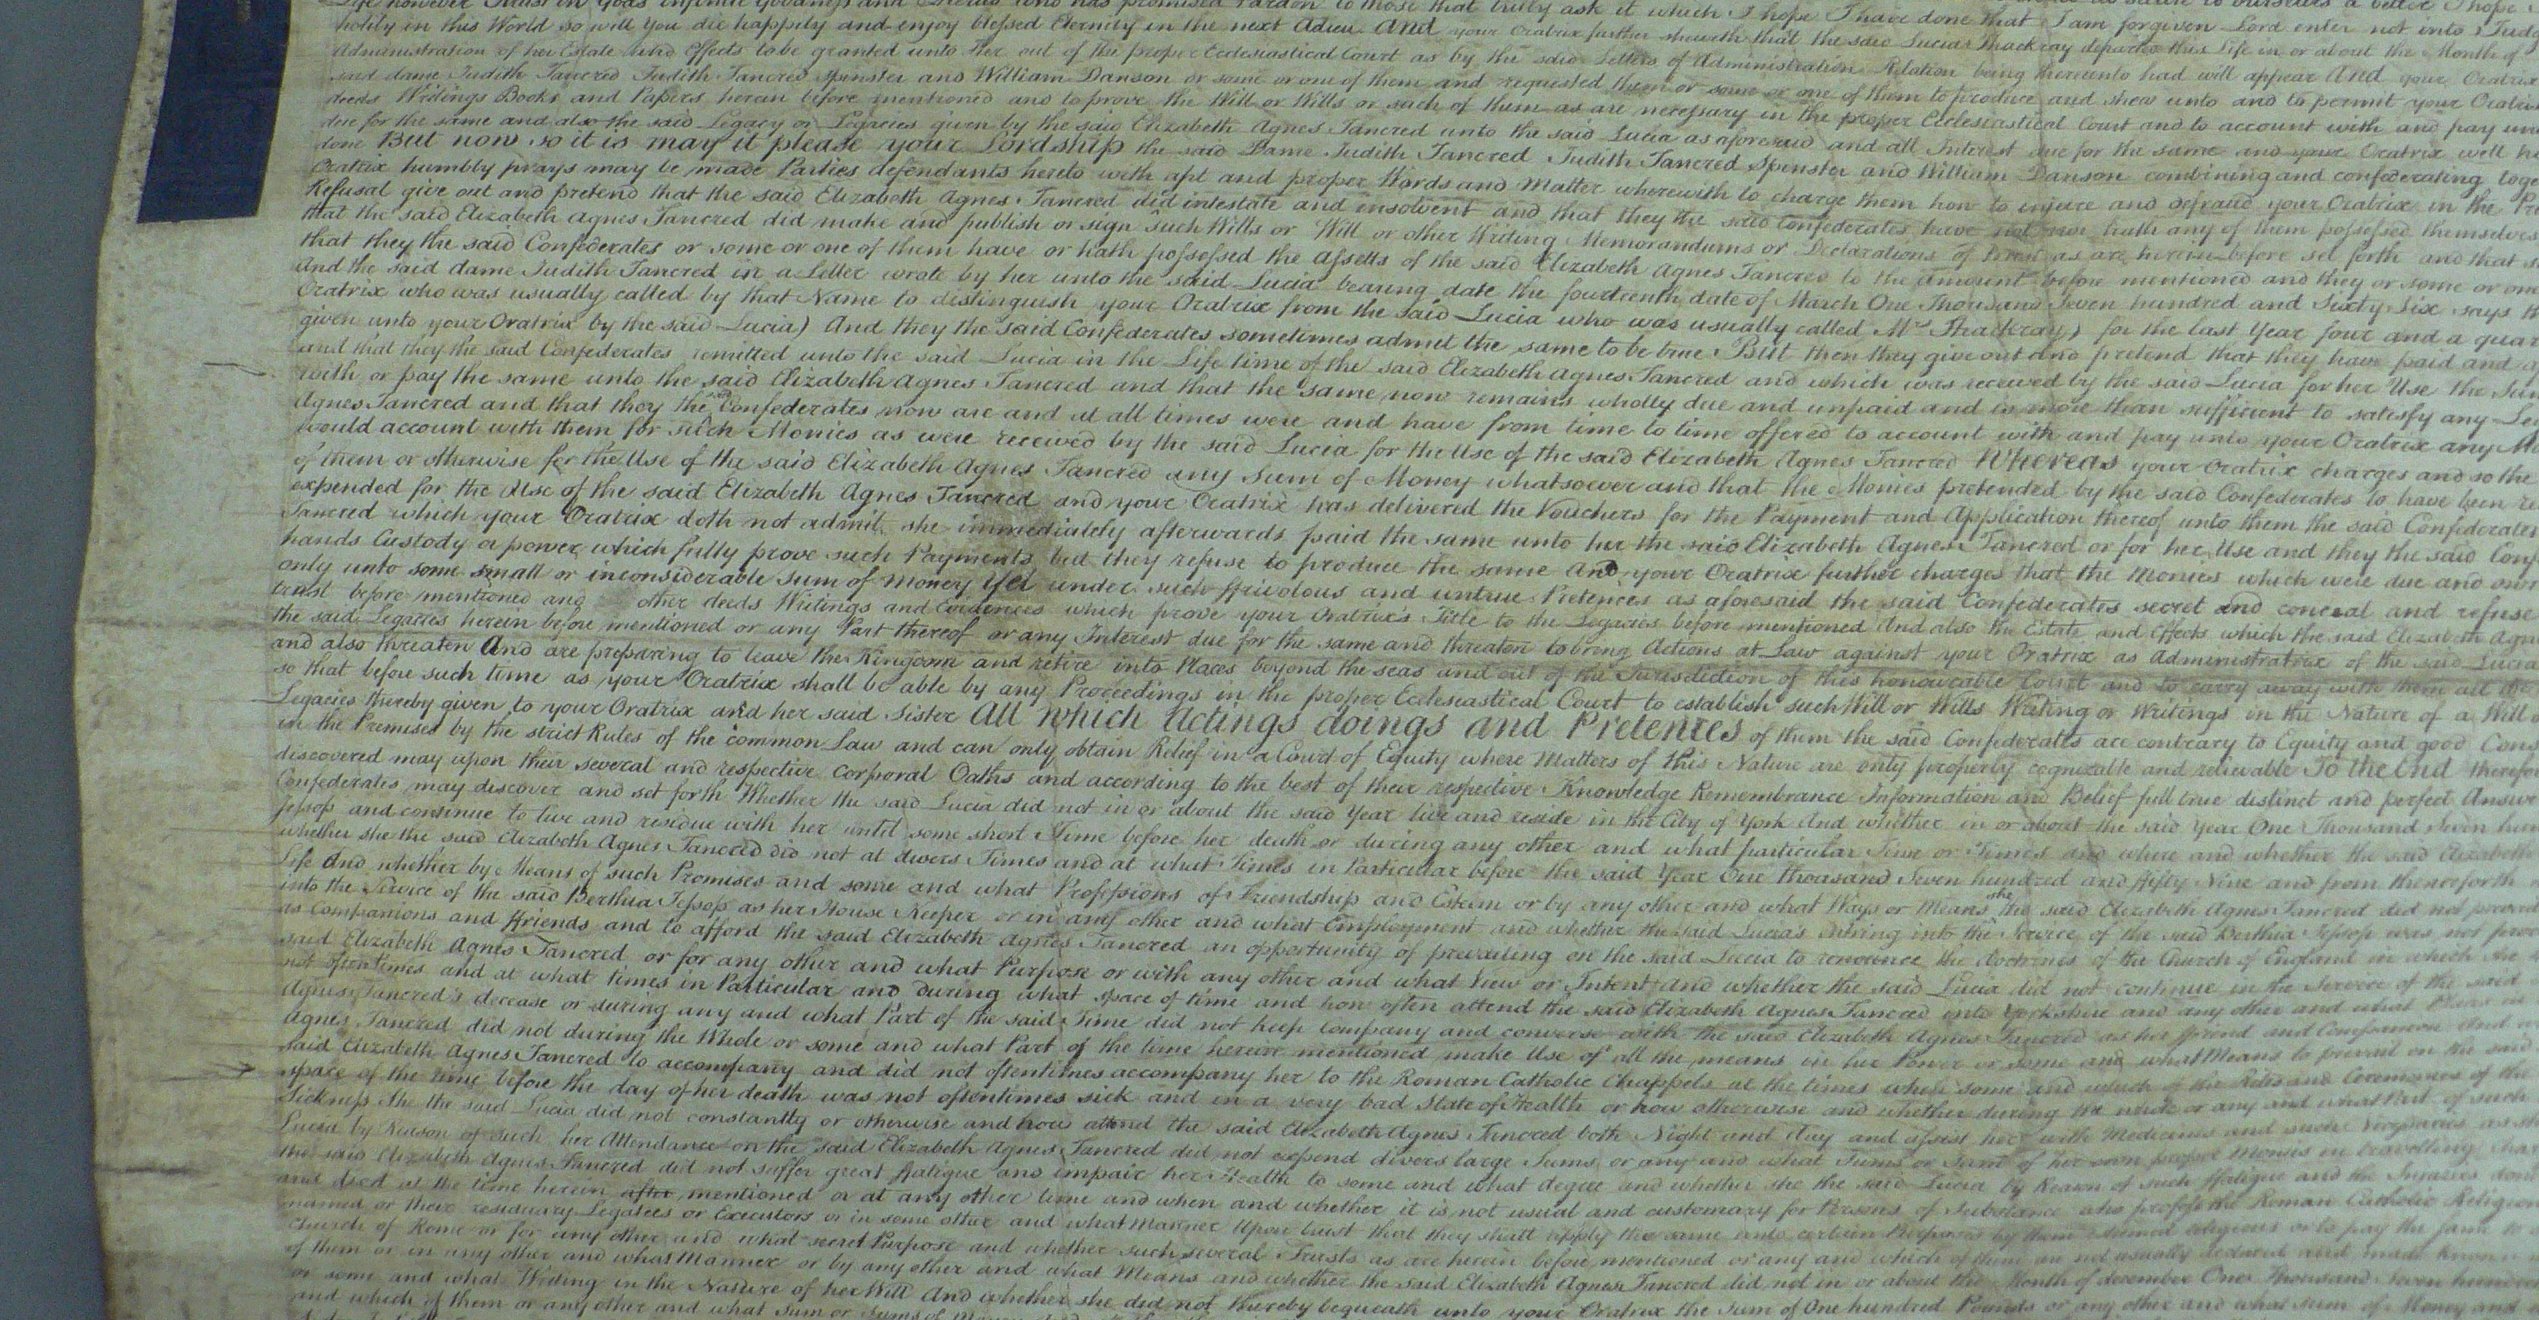 Life however Trust in Gods infinite Goodness and who has promised Pardon to those that truly ask it which I hope I have done that I am forgiven Lord enter not into
holily in this World so will you die happily and enjoy blessed Eternity in the next Adieu And your Oratrix further sheweth that the said Lucia Thackray departed this Life in or about the Month of
Administration of her Estate and Effects to be granted unto her out of the proper Ecclesiastical Court as by the said Letters of Administration Relation being thereunto had will appear And your Oratrix
said dame Judith Tancred Judith Tancred spinster and William Danson or some or one of them and requested them or some or one of them to produce and shew unto and to permit your Oratrix
deeds Writings Books and Papers herein before mentioned and to prove the Will or Wills or such of them as are necessary in the proper Ecclesiastical Court and to account with and pay unto
due for the same and also the said Legacy or Legacies given by the said Elizabeth Agnes Tancred unto the said Lucia as aforesaid and all Interest due for the same and your Oratrix well
done But now so it is may it please your Lordship the said Dame Judith Tancred Judith Tancred Spinster and William Danson combining and confederating
Oratrix humbly prays may be made Parties defendants hereto with apt and proper Words and Matter wherewith to charge them how to injure and defraud your Oratrix in the
Refusal give out and pretend that the said Elizabeth Agnes Tancred did intestate and insolvent and that they the said Confederates have not nor hath any of them possessed themselves
that the said Elizabeth Agnes Tancred did make and publish or sign such Wills or Will or other Writing Memorandums or Declarations of Trust as are herein before set forth and that
that they the said Confederates or some or one of them have or hath possessed the Assetts of the said Elizabeth Agnes Tancred to the amount before mentioned and they or some or one
And the said dame Judith Tancred in a Letter wrote by her unto the said Lucia bearing date the fourteenth date of March One Thousand Seven hundred and Sixty Six says
Oratrix who was usually called by that Name to distinguish your Oratrix from the said Lucia who was usually called Mrs Thackray) for the last Year four and a
given unto your Oratrix by the said Lucia) And they the said Confederates sometimes admit the same to be true But then they give out and pretend that they have paid and
and that they the said Confederates remitted unto the said Lucia in the Life time of the said Elizabeth Agnes Tancred and which was received by the said Lucia for her Use the
with or pay the same unto the said Elizabeth Agnes Tancred and that the same now remains wholly due and unpaid and is more than sufficient to satisfy any
Agnes Tancred and that they the said Confederates now are and at all times were and have from time to time offered to account with and pay unto your Oratrix any
would account with them for such Monies as were received by the said Lucia for the Use of the said Elizabeth Agnes Tancred Whereas your Oratrix charges and so the
of them or otherwise for the Use of the said Elizabeth Agnes Tancred any Sum of Money whatsoever and that the Monies pretended by the said Confederates to have been
expended for the Use of the said Elizabeth Agnes Tancred and your Oratrix has delivered the Vouchers for the Payment and Application thereof unto them the said Confederates
Tancred which your Oratrix doth not admit she immediately afterwards paid the same unto her the said Elizabeth Agnes Tancred or for her Use and they the said
hands Custody or power which fully prove such Payments but they refuse to produce the same And your Oratrix further charges that the Monies which were due and
only unto some small or inconsiderable Sum of money Yet under such ffrivolous and untrue Pretences as aforesaid the said Confederates secret and conceal and refuse
trust before mentioned and other deeds Writings and Evidences which prove your Oratrix's Title to the Legacies before mentioned And also the Estate and Effects which the said Elizabeth
the said Legacies herein before mentioned or any Part thereof or any Interest due for the same and threaten to bring Actions at Law against your Oratrix as Administratrix of the said Lucia
and also threaten And are preparing to leave the Kingdom and retire into Places beyond the seas and out of the Jurisdiction of this honourable Court and to carry away with them all
so that before such time as your Oratrix shall be able by any Proceedings in the proper Ecclesiastical Court to establish such Will or Wills Writing or Writings in the Nature of a Will
Legacies thereby given to your Oratrix and her said Sister All which Actings doings and Pretences of them the said Confederates are contrary to Equity and good
in the Premises by the strict Rules of the common Law and can only obtain Relief in a Court of Equity where Matters of this Nature are only properly cognizable and relievable To the End
discovered may upon their several and respective Corporal Oaths and according to the best of their respective Knowledge Remembrance Information and Belief full true distinct and perfect
Confederates may discover and set forth Whether the said Lucia did not in or about the said Year live and reside in the City of York And whether in or about the said Year One Thousand Seven
Jessop and continue to live and residue with her until some short Time before her death or during any other and what particular Time or Times and where and whether the said Elizabeth
whether she the said Elizabeth Agnes Tancred did not at divers Times and at what Times in Particular before the said Year One thousand Seven hundred and ffifty Nine and from thenceforth
Life And whether by Means of such Promises and some and what Professions of Friendship and Esteem or by any other and what Ways or Means she the said Elizabeth Agnes Tancred did not
into the Service of the said Berthia Jessop as her House Keeper or in any other and what Employment and whether the said Lucia's entring into the Service of the said Berthia Jessop was not
as Companions and ffriends and to afford the said Elizabeth Agnes Tancred an opportunity of prevailing on the said Lucia to renounce the doctrines of the Church of England in which she
said Elizabeth Agnes Tancred or for any other and what Purpose or with any other and what View or Intent And whether the said Lucia did not continue in the Service of the said
not oftentimes and at what times in Particular and during what space of time and how often attend the said Elizabeth Agnes Tancred into Yorkshire and any other and what
Agnes Tancred's decease or during any and what Part of the said Time did not keep Company and converse with the said Elizabeth Agnes Tancred as her ffriend and Companion And
Agnes Tancred did not during the Whole or some and what Part of the time herein mentioned make Use of all the means in her Power or some and what Means to prevail on the said
said Elizabeth Agnes Tancred to accompany and did not oftentimes accompany her to the Roman Catholic Chappels at the times when some and which of the Rites and Ceremonies of the
space of the time before the day of her death was not oftentimes sick and in a very bad State of Health or how otherwise and whether during the whole or any and what Part of such
Sickness She the said Lucia did not constantly or otherwise and how attend the said Elizabeth Agnes Tancred both Night and day and assist her with Medicines and such
Lucia by Reason of such her Attendance on the said Elizabeth Agnes Tancred did not expend divers large Sums or any and what Sums or Sum of her own proper Monies in travelling
the said Elizabeth Agnes Tancred did not suffer great ffatigue and impair her Health to some and what degree and whether she the said Lucia by Reason of such ffatigue and the Injuries
and died at the time herein after mentioned or at any other time and when and whether it is not usual and customary for Persons of Substance who profess the Roman Catholic Religion
named or there residuary Legatees or Executors or in some other and what Manner Upon trust that they shall apply the same unto certain Purposes by them
Church of Rome or for any other and what secret Purpose and whether such several Trusts as are herein before mentioned or any and which of them are not usually declared and made known
of them or in any other and what Manner or by any other and what Means and whether the said Elizabeth Agnes Tancred did not in or about the Month of december One Thousand Seven hundred
or some and what Writing in the Nature of her Will And whether she did not thereby bequeath unto your Oratrix the Sum of One hundred Pounds or any other and what Sum of Money and
and which of them or any other and what Sum or Sums of Money